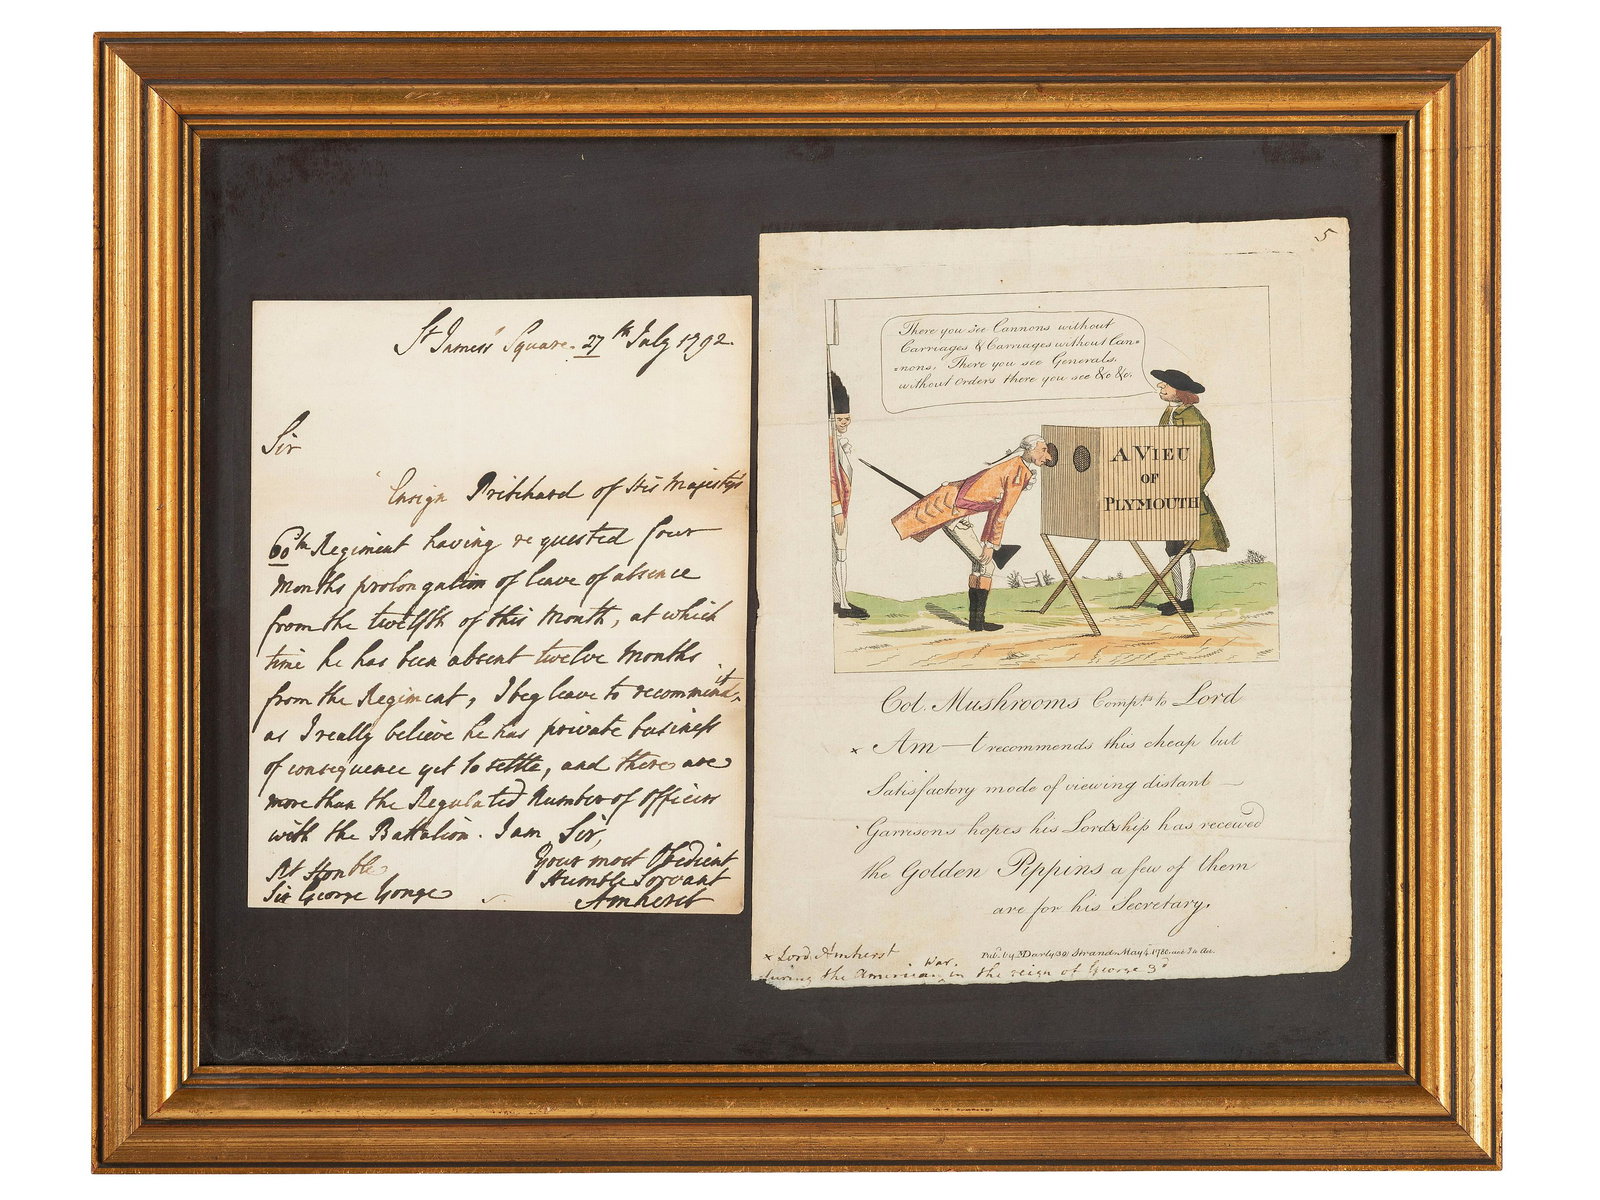 St James's Square. 27th July 1792.
Sir
Ensign Pritchard of His Majesty's
60th Regiment having requested four
Months prolongation of leave of absence
from the twelfth of this Month, at which
time he has been absent twelve Months
from the Regiment, I beg leave to recommend it,
as I really believe he has private business
of consequence yet to settle, and there are
more than the Regulated Number of Officers
with the Battalion. I am Sir,
Your most Obedient
Humble Servant
Amherst
Rt Honble
Sir George Yonge
5
There you see Cannons without
Carriages & Carriages without Can=
=nons. There you see Generals
without Orders there you see &c &c.
A VIEU
OF
PLYMOUTH
Col. Mushrooms Compts to Lord
x Am—t recommends this cheap but
Satisfactory mode of viewing distant
Garrisons hopes his Lordship has received
the Golden Pippins a few of them
are for his Secretary.
Pub. by MDarly 39 Strand May 1780
x Lord Amherst
during the American War. in the reign of George 3d